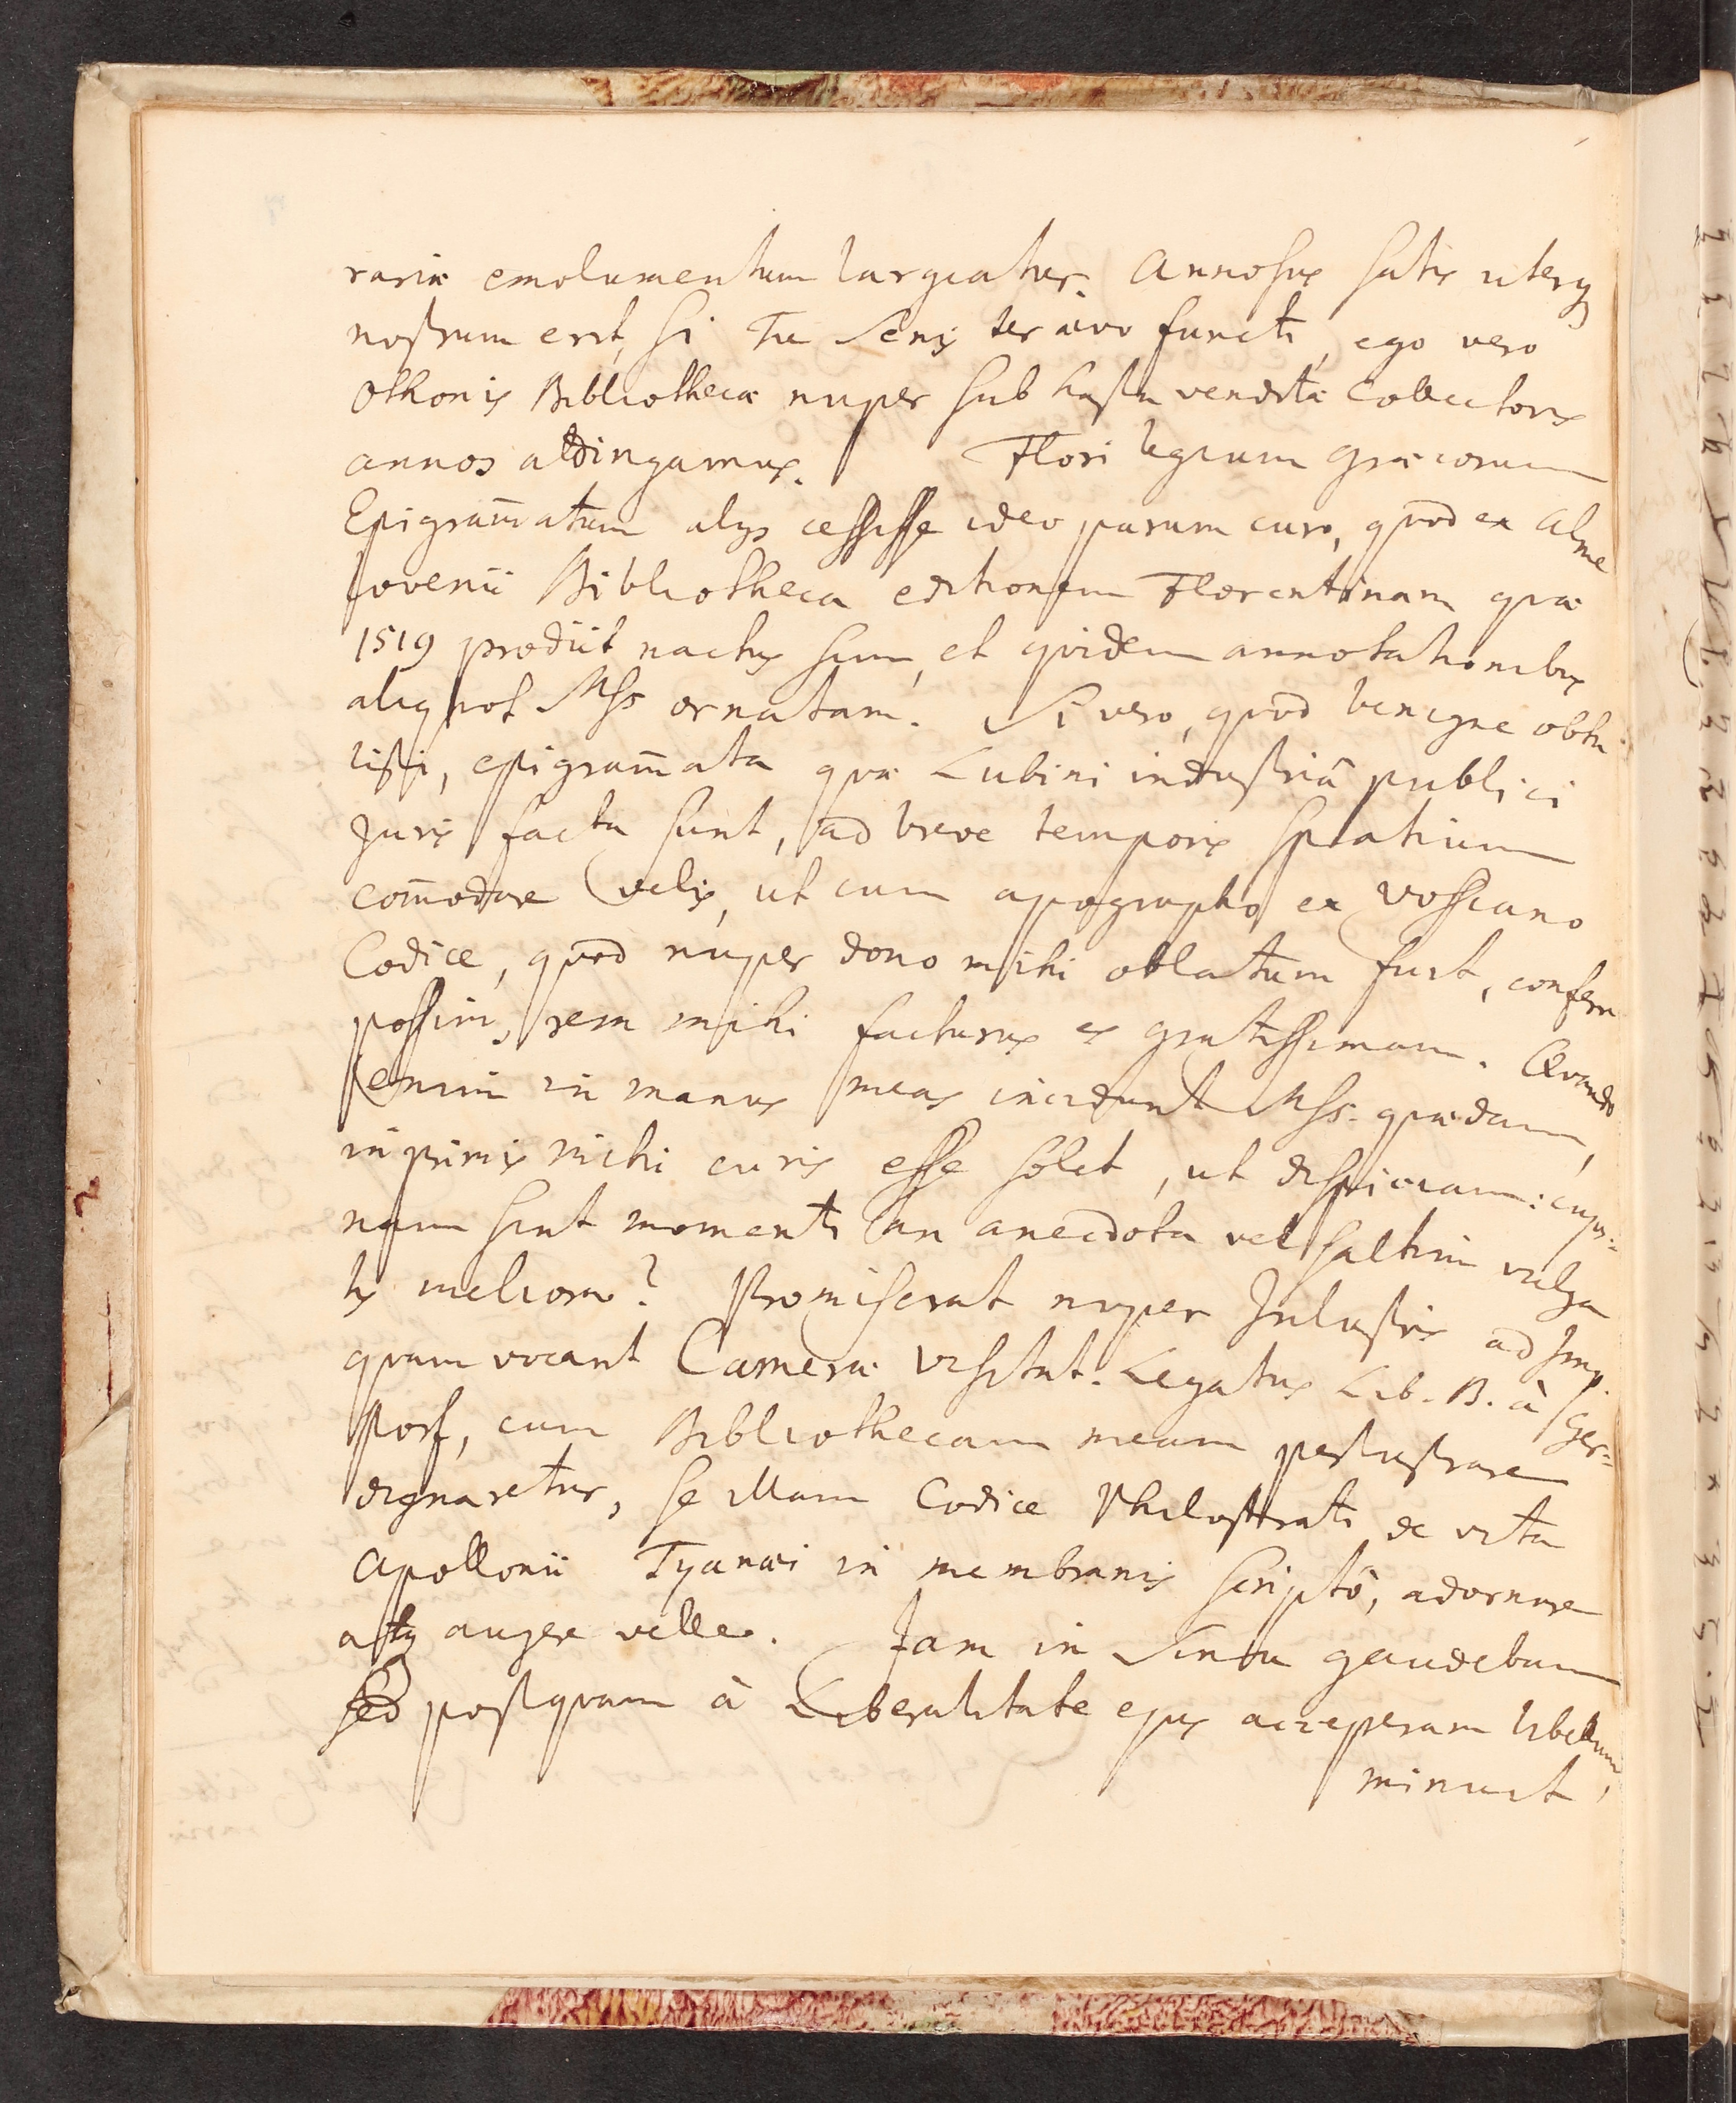 rariæ emolumentum largiatur. Annosus satis uterq
nostrum erit, si Tu Senis ter ævo functi, ego vero
Othonis Bibliothecæ nuper sub hasta venditæ Collectoris
annos attingamus. Florilegium Græcorum
Epigram̄atum alijs cessisse ideo parum curo, quod ex Alme
lovenii Bibliotheca editionem Florentinam quæ
1519 prodiit nactus sum, et quidem annotationibus
aliquot Mss ornatam. Si vero, quod benigne obtu
listi, epigram̄ata quæ Lubini industriâ publici
Juris facta sunt, ad breve temporis spatium
com̄odare velis, ut cum apographo ex Vossiano
Codice, quod nuper dono mihi oblatum fuit, conferre
possim, rem mihi facturus es gratissimam. Quando
enim in manus meas incidunt Mss. quædam,
inprimis mihi curis esse solet, ut dispiciam: cujus=
nam sint momenti an anecdota vel saltim vulga
tis meliora? Promiserat nuper Inlustris ad Imp.
quam vocant Cameræ Visitat. Legatus Lib. B. à Ger=
storf, cum Bibliothecam meam perlustrare
dignaretur, se illam Codice Philostrati de vita
Apollonii Tyanæi in membranis scriptô, adornare
atq augere velle. Jam in Sinu gaudebam
sed postquam à Liberalitate ejus acceperam libellum,
minuit